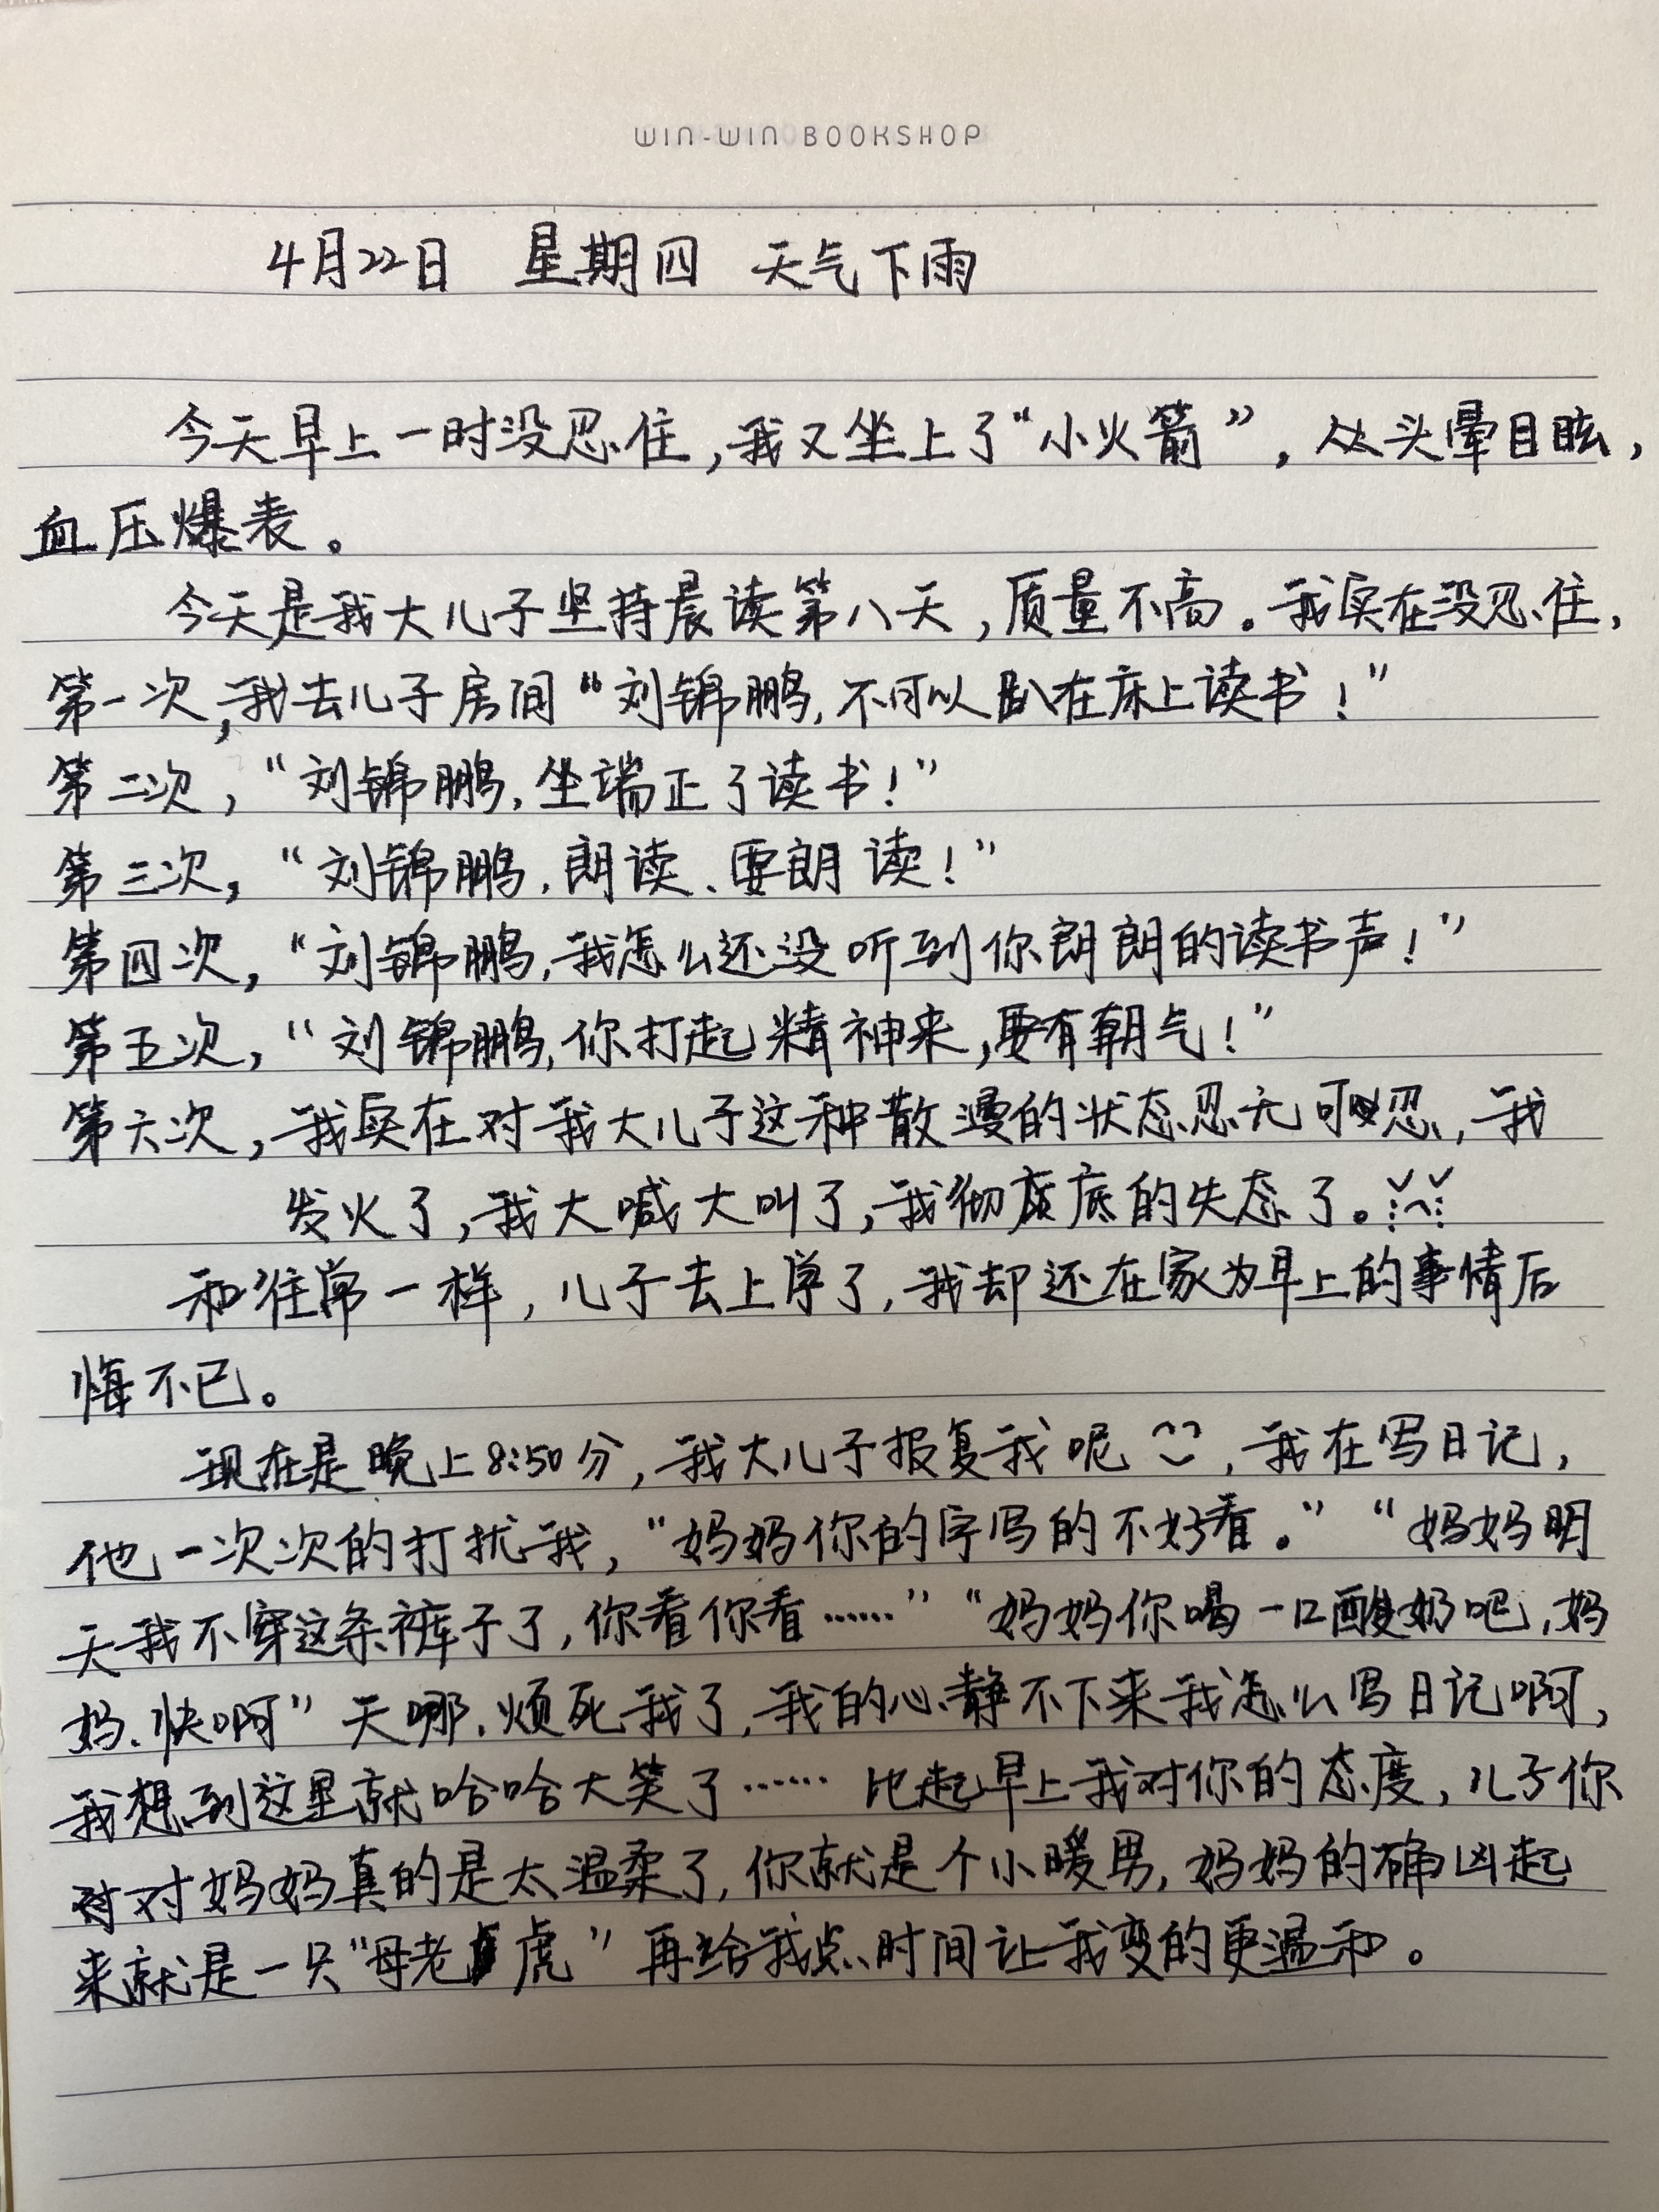 WIN-WIN BOOKSHOP
4月22日 星期四 天气下雨
今天早上一时没忍住,我又坐上了“小火箭”,从头晕目眩,
血压爆表。
今天是我大儿子坚持晨读第八天,质量不高。我实在没忍住,
第一次,我去儿子房间“刘锦鹏,不可以趴在床上读书!”
第二次,“刘锦鹏,坐端正了读书!”
第三次,“刘锦鹏,朗读、要朗读!”
第四次,“刘锦鹏,我怎么还没听到你朗朗的读书声!”
第五次,“刘锦鹏,你打起精神来,要有朝气!”
第六次,我实在对我大儿子这种散漫的状态忍无可忍,我
发火了,我大喊大叫了,我彻底底的失态了。
和往常一样,儿子去上学了,我却还在家为早上的事情后
悔不已。
现在是晚上8:50分,我大儿子报复我呢,我在写日记,
他一次次的打扰我,“妈妈你的字写的不好看。”“妈妈明
天我不穿这条裤子了,你看你看……”“妈妈你喝一口酸奶吧,妈
妈、快啊”天哪,烦死我了,我的心静不下来我怎么写日记啊,
我想到这里就哈哈大笑了…… 比起早上我对你的态度,儿子你
对妈妈真的是太温柔了,你就是个小暖男,妈妈的确凶起
来就是一只“母老虎”再给我点时间让我变的更温和。